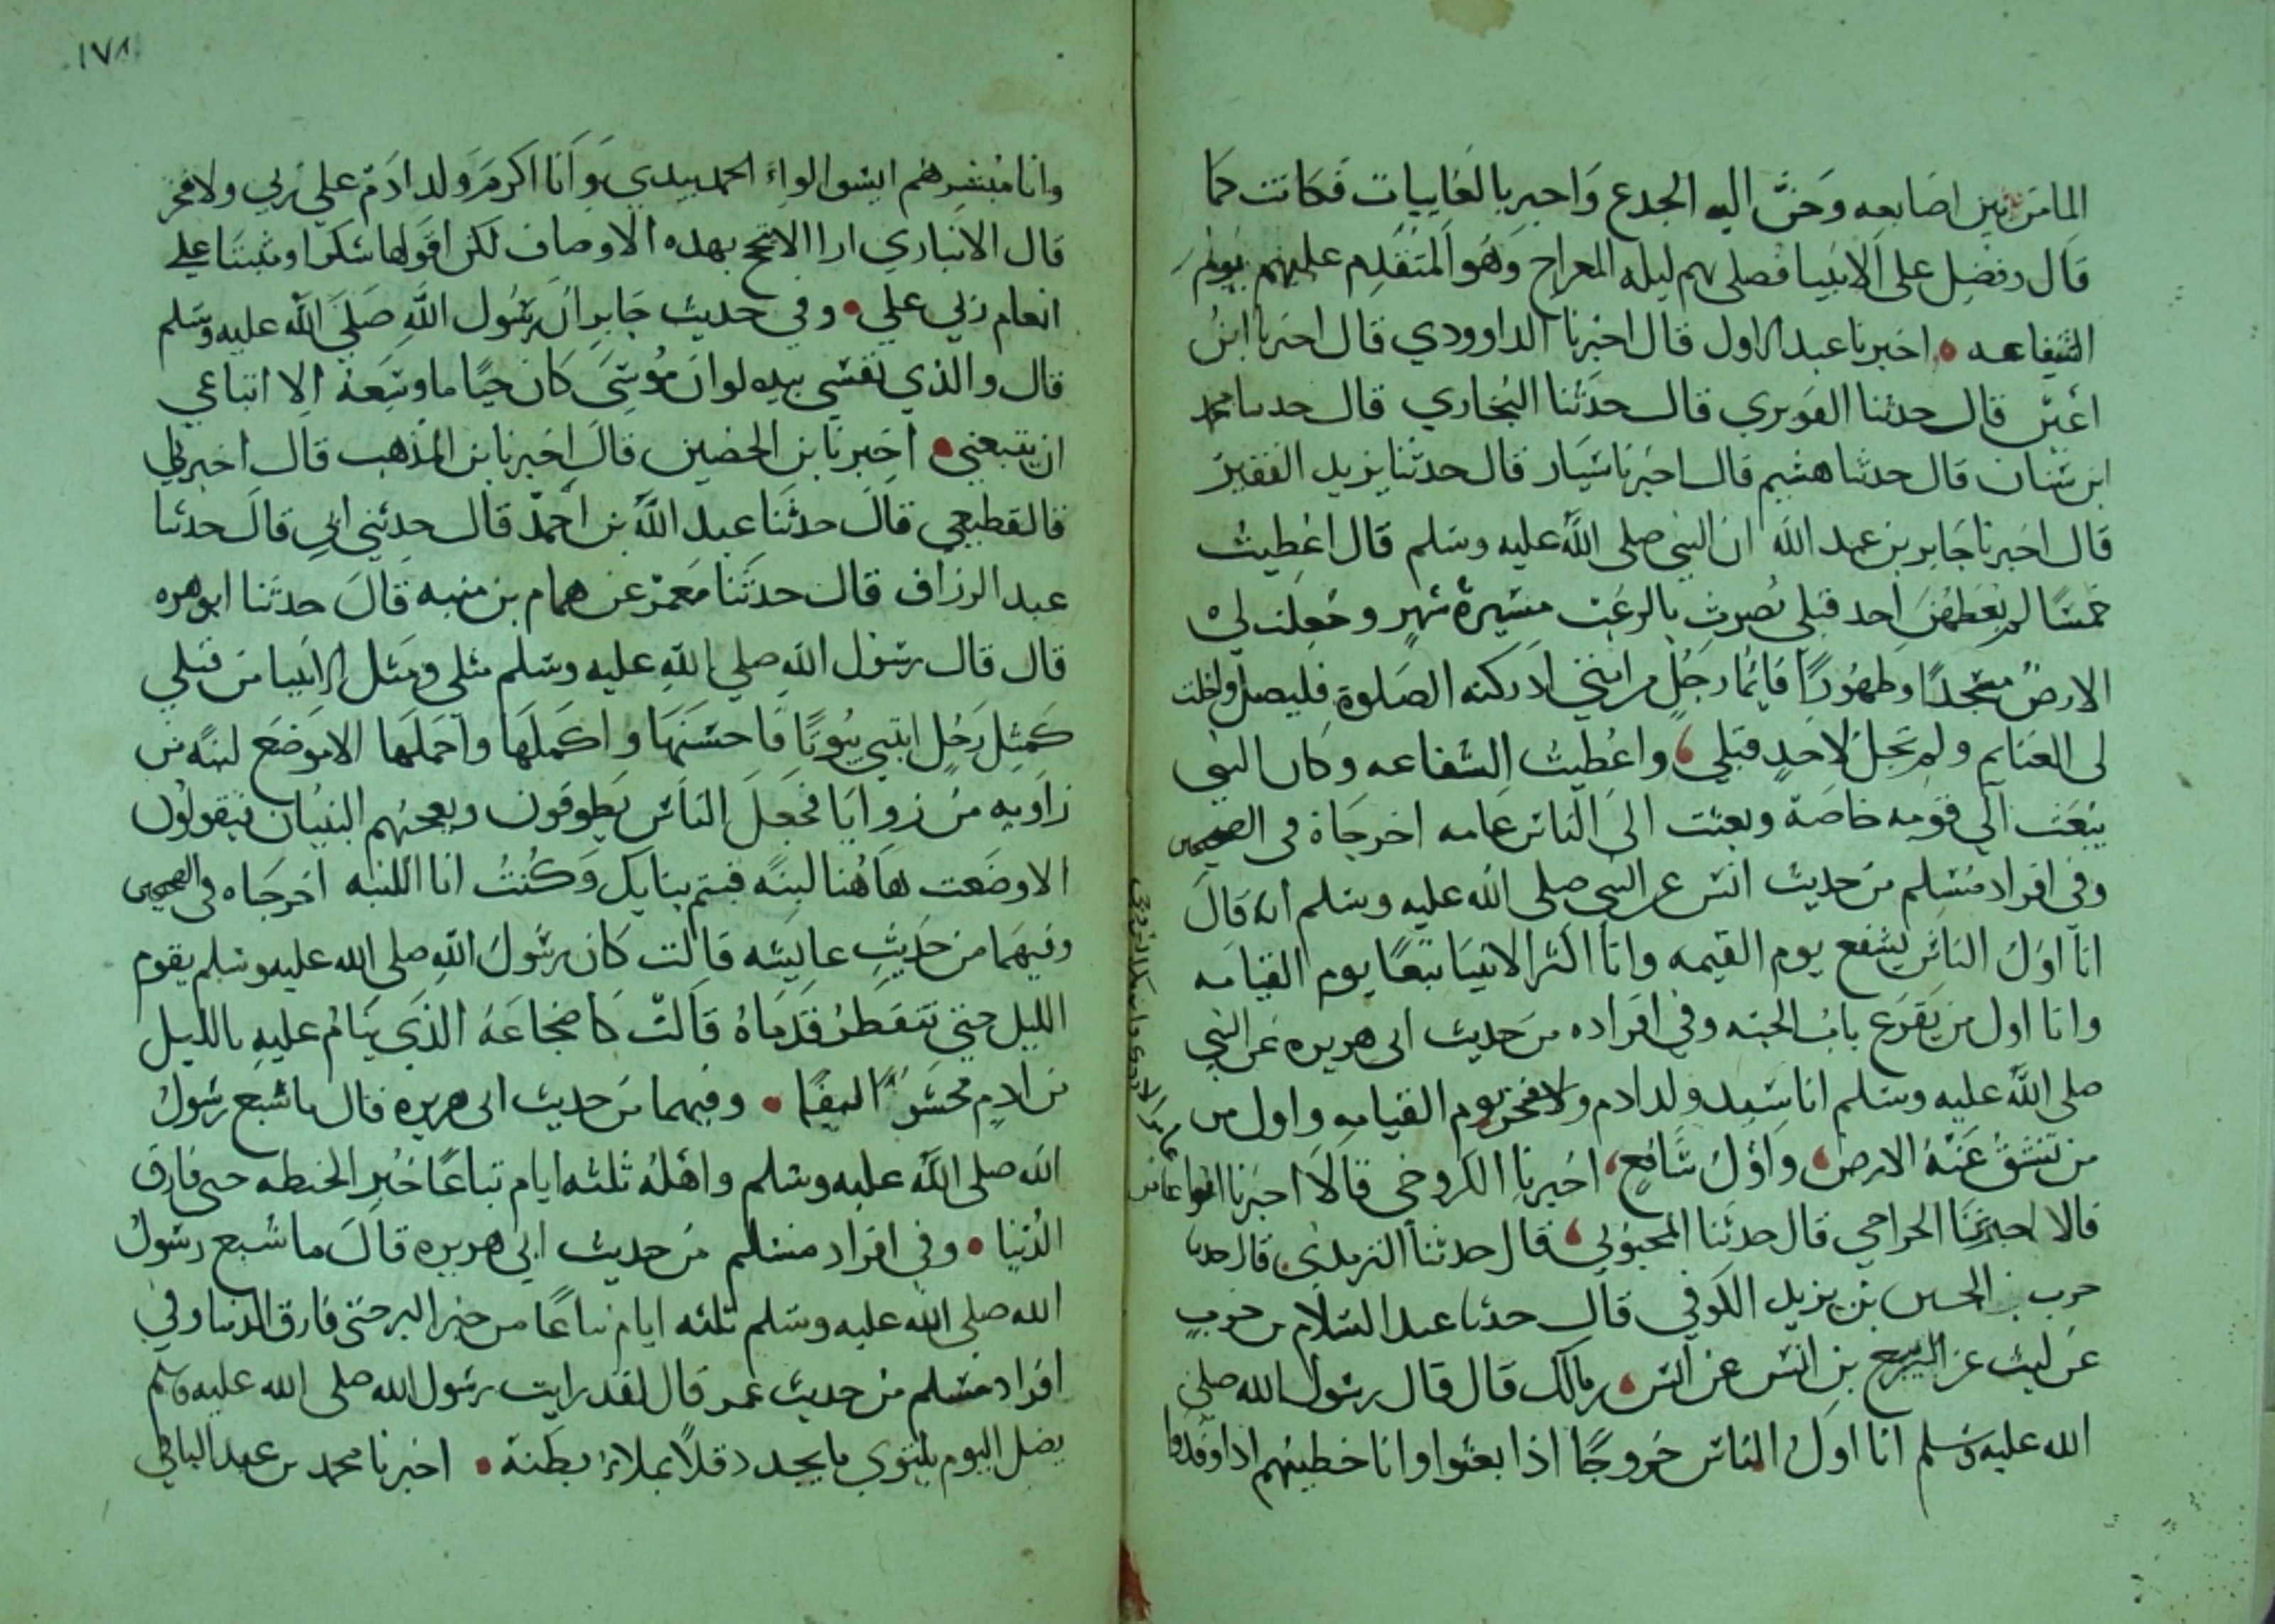 الما من بين اصابعه وحن اليه الجدع واخبر بالغايبات فكانت كما
قال وفضل على الانبيا فصلى بهم ليله المعراج وهو المتقدم عليهم يوم
الشفاعه اخبرنا عبد الاول قال اخبرنا الداوودي قال اخبرنا ابن
اعين قال حدثنا الفربري قال حدثنا البخاري قال حدثنا محمد
ابن سنان قال حدثنا هشيم قال اخبرنا سيار قال حدثنا يزيد الفقير
قال اخبرنا جابر بن عبد الله ان النبي صلى الله عليه وسلم قال اعطيت
خمسًا لم يعطهن احد قبلي نصرت بالرعب مسيرة شهر وجعلت لي
الارض مسجدًا وطهورًا فايما رجل من امتي ادركته الصلوة فليصل واحلت
لى الغنايم ولم تحل لاحدٍ قبلي واعطيت الشفاعه وكان النبي
يبعث الي قومه خاصة وبعثت الى الناس عامه اخرجاه في الصحيحين
وفي افراد مسلم من حديث انس عن النبي صلى الله عليه وسلم انه قال
انا اول الناس يشفع يوم القيمه وانا اكثر الانبيا تبعًا يوم القيامه
وانا اول من يقرع باب الجنه وفي افراده من حديث ابى هريره عن النبي
صلى الله عليه وسلم انا سيد ولد ادم ولا فخر يوم القيامه واول من
من تنشق عنه الارض واول شافعٍ اخبرنا الكروخي قال اخبرنا ابوا عامر
قالا اخبرنا الجراحي قال حدثنا المحبوبي قال حدثنا الترمذي قال حدثنا
حرب بن الحسين بن يزيد الكوفي قال حدثنا عبد السلام بن حربٍ
عن ليث عن الربيع بن انس عن انس بن مالك قال قال رسول الله صلى
الله عليه وسلم انا اول الناس خروجًا اذا بعثوا وانا خطيبهم اذا وفدوا
١٧٨
وانا مبشرهم ايسوا لواء الحمد بيدي وانا اكرم ولد ادم علي ربي ولا فخر
قال الانباري ارا الاتبجح بهده الاوصاف لكن اقولها شكرا ومثبتا علي
انعام ربي علي وفي حديث جابر ان رسول الله صلى الله عليه وسلم
قال والذي نفسي بيده لو ان موسى كان حيًا ما وسعه الا اتباعي
ان يتبعني اخبرنا بن الحصين قال اخبرنا بن المذهب قال اخبرني
قالقطيعي قال حدثنا عبد الله بن احمد قال حدثني ابي قال حدثنا
عبد الرزاق قال حدثنا معمر عن همام بن منبه قال حدثنا ابو هره
قال قال رسول الله صلي الله عليه وسلم مثلي ومثل الانبيا من قبلي
كمثل رجلٍ ابتني بيوتًا فاحسنها واكملها واجملها الا موضع لبنةٍ من
زاويه من زوايا فجعل الناس يطوفون ويعجبهم البنيان فيقولون
الا وضعت هاهنا لبنةً فيتم بنايك وكنت انا اللبنه اخرجاه في الصحيحين
وفيهما من حديث عايشه قالت كان رسول الله صلى الله عليه وسلم يقوم
الليل حتي تتفطر قدماه قالت كا ضجاعه الذي ينام عليه بالليل
من ادمٍ محشوًا ليفًا وفيهما من حديث ابى هريره قال ما شبع رسول
الله صلى الله عليه وسلم واهله ثلثه ايام تباعًا خبز الحنطه حتى فارق
الدنيا وفي افراد مسلم من حديث ابي هريره قال ما شبع رسول
الله صلى الله عليه وسلم ثلثه ايام تباعًا من خبز البر حتى فارق الدنيا وفي
افراد مسلم من حديث عمر قال لقد رايت رسول الله صلى الله عليه وسلم
يضل اليوم يلتوي ما يجد دقلاً يملاء بطنه اخبرنا محمد بن عبد الباقي